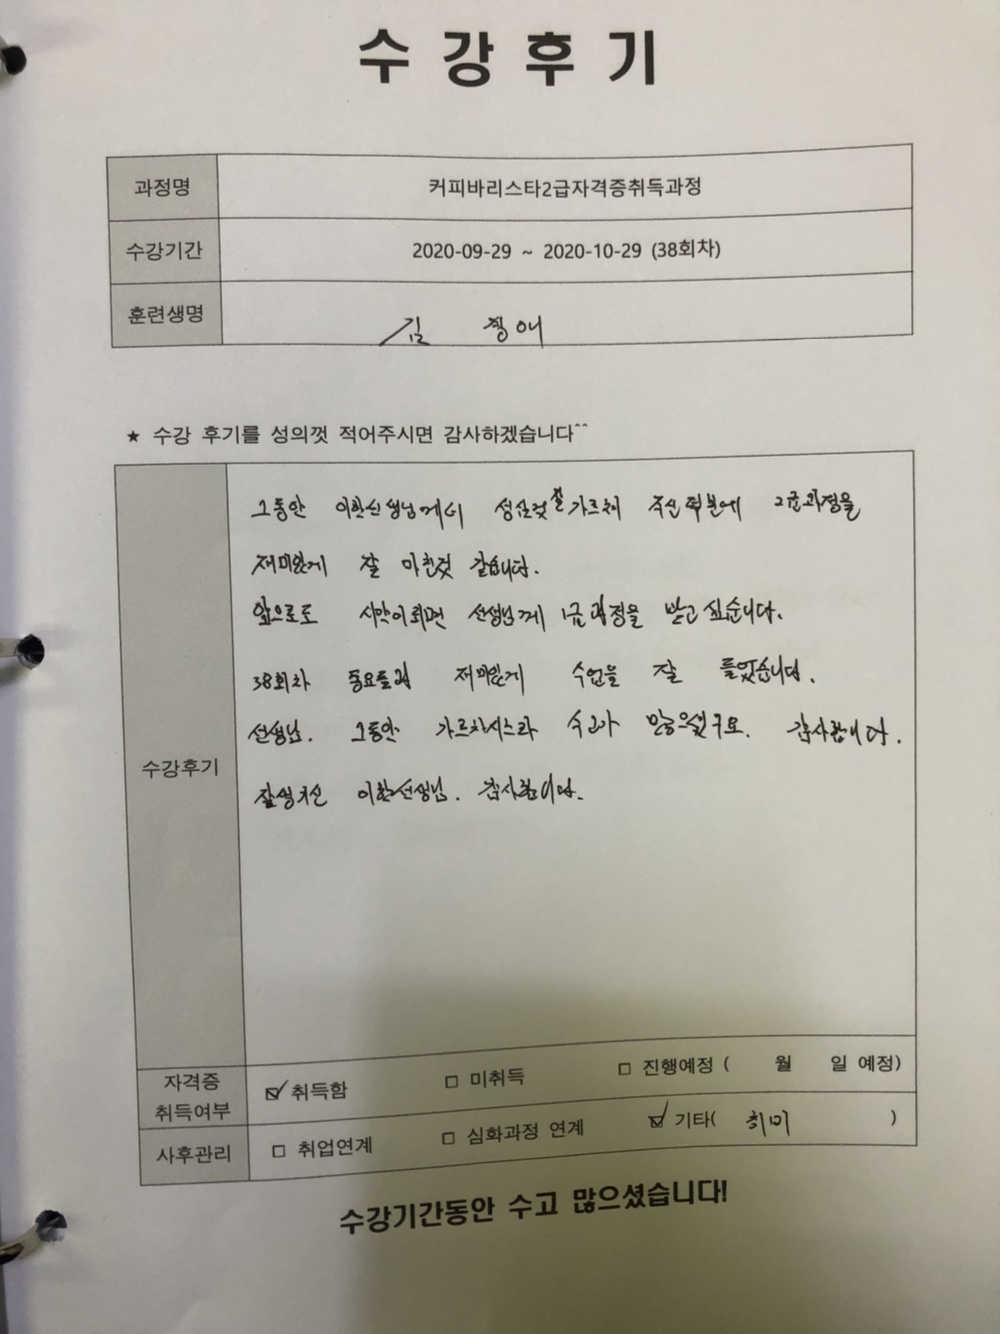 수강후기
과정명 커피바리스타2급자격증취득과정
수강기간 2020-09-29 ~ 2020-10-29 (38회차)
훈련생명 김 정애
★ 수강 후기를 성의껏 적어주시면 감사하겠습니다^^
수강후기
그동안 이한선생님께서 성심껏 잘 가르쳐 주신 덕분에 2급과정을
재미있게 잘 마친것 같습니다.
앞으로도 시작이되면 선생님께 1급과정을 받고 싶습니다.
38회차 재미있게 수업을 잘 들었습니다.
선생님. 그동안 가르치시느라 수고가 많으셨구요. 감사합니다.
잘생기신 이한선생님. 감사합니다.
자격증 취득여부 ☑ 취득함 □ 미취득 □ 진행예정 ( 월 일 예정)
사후관리 □ 취업연계 □ 심화과정 연계 ☑ 기타( 취미 )
수강기간동안 수고 많으셨습니다!